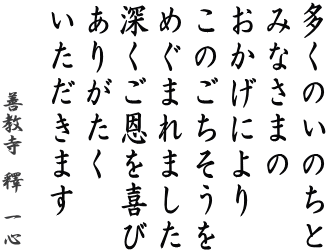 多くのいのちと
みなさまの
おかげにより
このごちそうを
めぐまれました
深くご恩を喜び
ありがたく
いただきます
善教寺 釋 一心